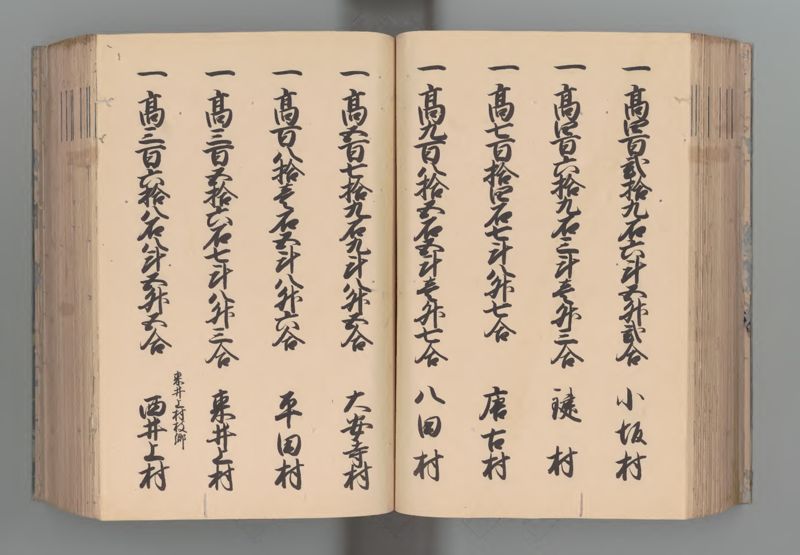 一高四百弐拾九石六斗五升弐合 小坂村
一高四百六拾九石三斗壱升三合 鍵村
一高七百拾四石七斗八升七合 唐古村
一高九百八拾五石五斗壱升七合 八田村
一高五百七拾九石九斗八升五合 大安寺村
一高百八拾壱石五斗八升六合 平田村
一高三百五拾六石七斗八升三合 東井上村
東井上村枝郷
一高三百六拾八石八斗五升五合 西井上村